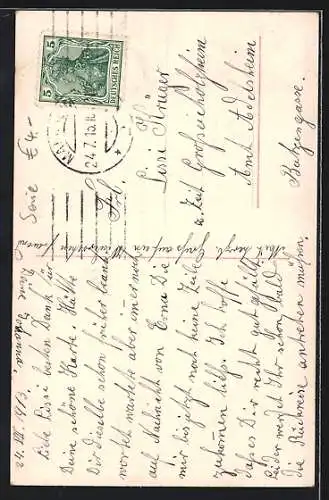 Liebe Lissi besten Dank für
Deine schöne Karte. Hätte
Dir dieselbe schon früher beant-
wortet wartete aber immer noch
auf Nachricht von Erna Die
mir bis jetzt noch keine Zeile
zukommen ließ. Ich hoffe
dass es Dir recht gut gefällt.
Leider werdet Ihr schon bald
die Rückreise antreten müssen.
Mit herzl. Gruß auf ein Wiedersehen
Frl.
Lissi Krüger
z. Zeit Großeicholzheim
Amt Adelsheim
Butzengasse.
5 DEUTSCHES REICH 5
24.7.15
Serie £4-